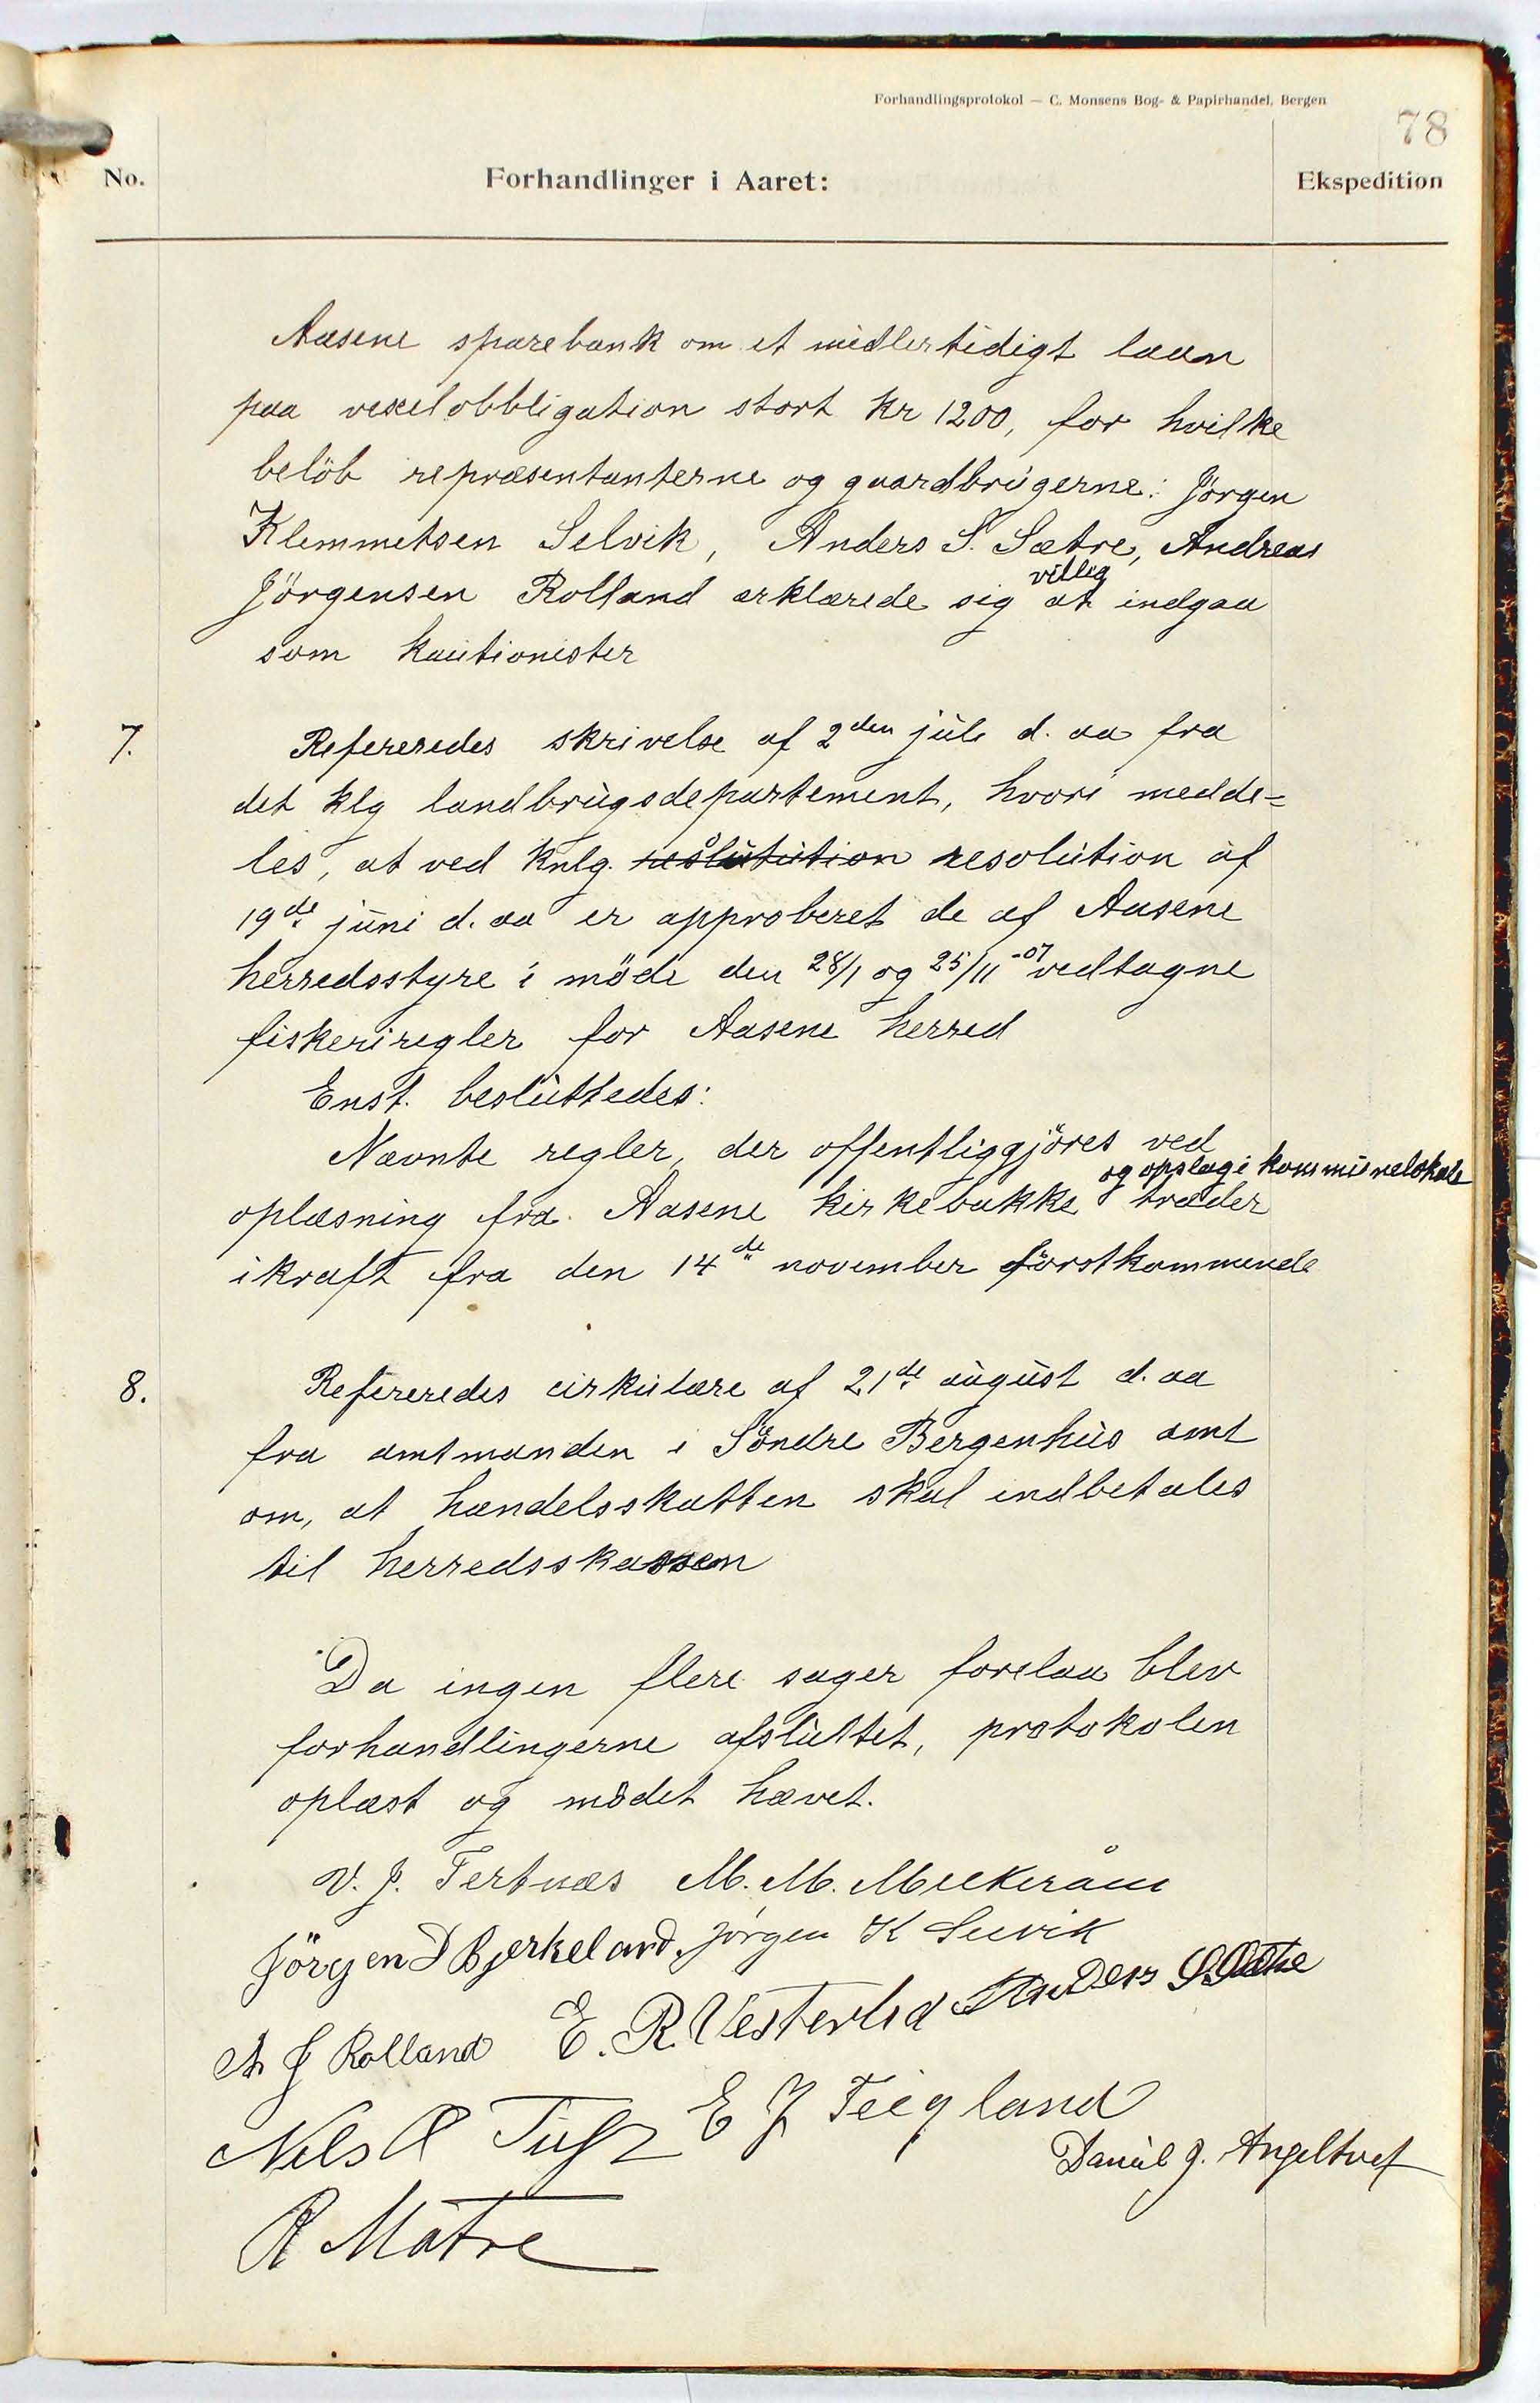 Forhandlingsprotokol — C. Monsens Bog- & Papirhandel, Bergen
78
No. Forhandlinger i Aaret: Ekspedition
Aasene sparebank om et midlertidigt laan
paa vexelobbligation stort kr 1200, for hvilke
belöb repræsentanterne og gaardbrugerne: Jörgen
Klemmetsen Selvik, Anders S. Sætre, Andreas
villig
Jörgensen Rolland erklærede sig at indgaa
som kautionister
7. Refereredes skrivelse af 2den juli d. aa fra
det klg landbrugsdepartement, hvori medde=
les, at ved Knlg. reslutution resolution af
19de juni d. aa er approberet de af Aasene
herredsstyre i möde den 28/1 og 25/11-07 vedtagne
fiskeriregler for Aasene herred
Enst. besluttedes:
Nævnte regler, der offentliggjöres ved
og opslag i kommunelokale
oplæsning fra Aasene kirkebakke træder
ikraft fra den 14de november förstkommende
8. Refereredes cirkulære af 21de august d. aa
fra amtmanden i Söndre Bergenhus amt
om, at handelsskatten skal indbetales
til herredskassen
Da ingen flere sager forelaa blev
forhandlingerne afsluttet, protokolen
oplæst og mödet hævet.
V. J. Tertnæs M. M. Mjelkeråen
Jörgen D Bjerkeland, Jörgen K Selvik
A J Rolland E. R. Vesterlid Anders S Sætre
Nels A E J Teigland
Daniel J. Angeltvet
R Matre